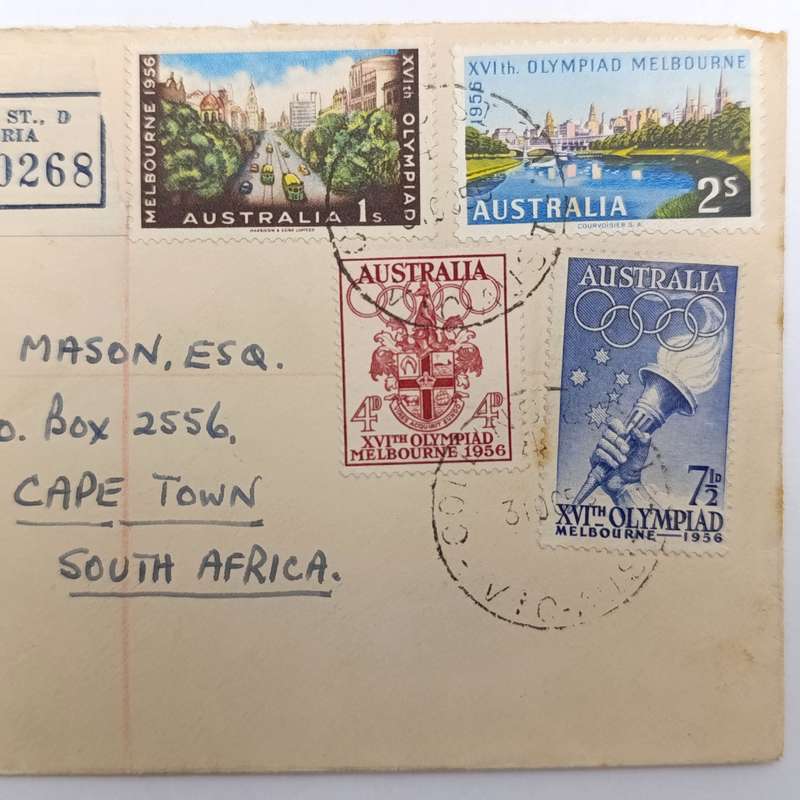 ST., D
RIA
0268
MELBOURNE 1956
XVIth OLYMPIAD
AUSTRALIA 1s.
HARRISON & SONS LIMITED
XVIth. OLYMPIAD MELBOURNE
1956
AUSTRALIA 2s
COURVOISIER S.A.
AUSTRALIA
4D 4D
VIRES ACQUIRIT EUNDO
XVITH OLYMPIAD
MELBOURNE 1956
AUSTRALIA
7½D
XVITH OLYMPIAD
MELBOURNE 1956
MASON, ESQ.
O. BOX 2556,
CAPE TOWN
SOUTH AFRICA.
VIC-AUST